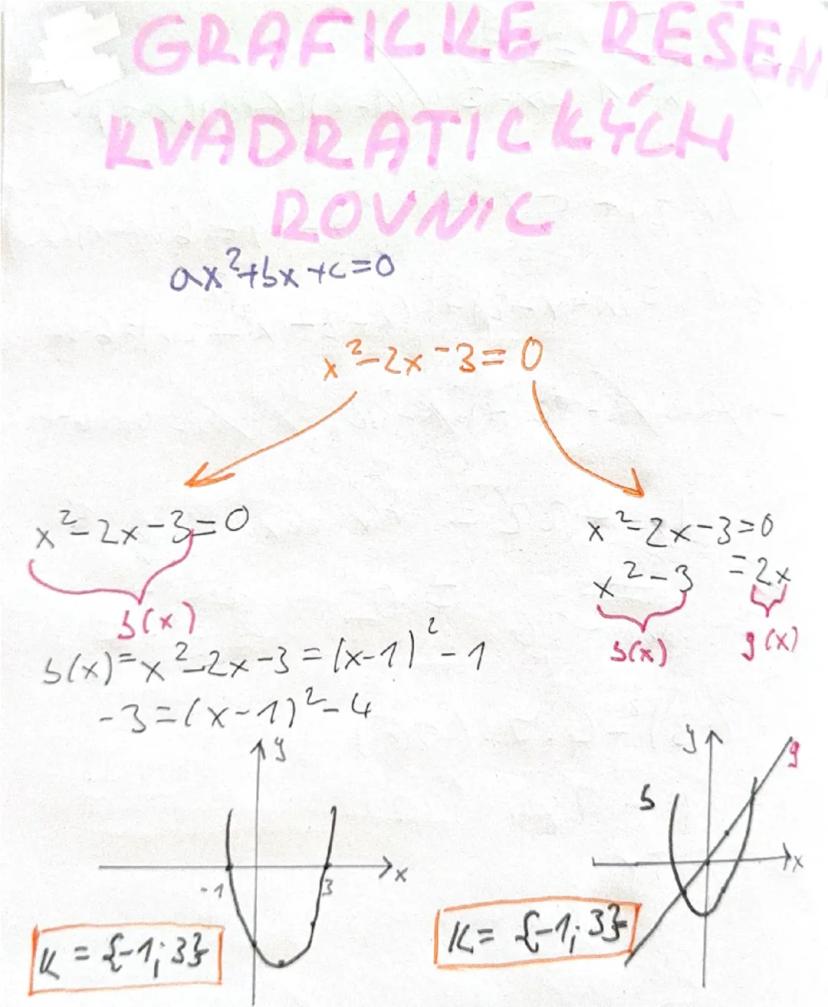 GRAFICKÉ ŘEŠEN
KVADRATICKÝCH
ROVNIC
ax²+bx+c=0
x²-2x-3=0
x²-2x-3=0
f(x)
f(x)=x²-2x-3=(x-1)²-1
-3=(x-1)²-4
y
x
-1
3
K={-1;3}
x²-2x-3=0
x²-3 =2x
f(x) g(x)
y
g
f
x
K={-1;3}